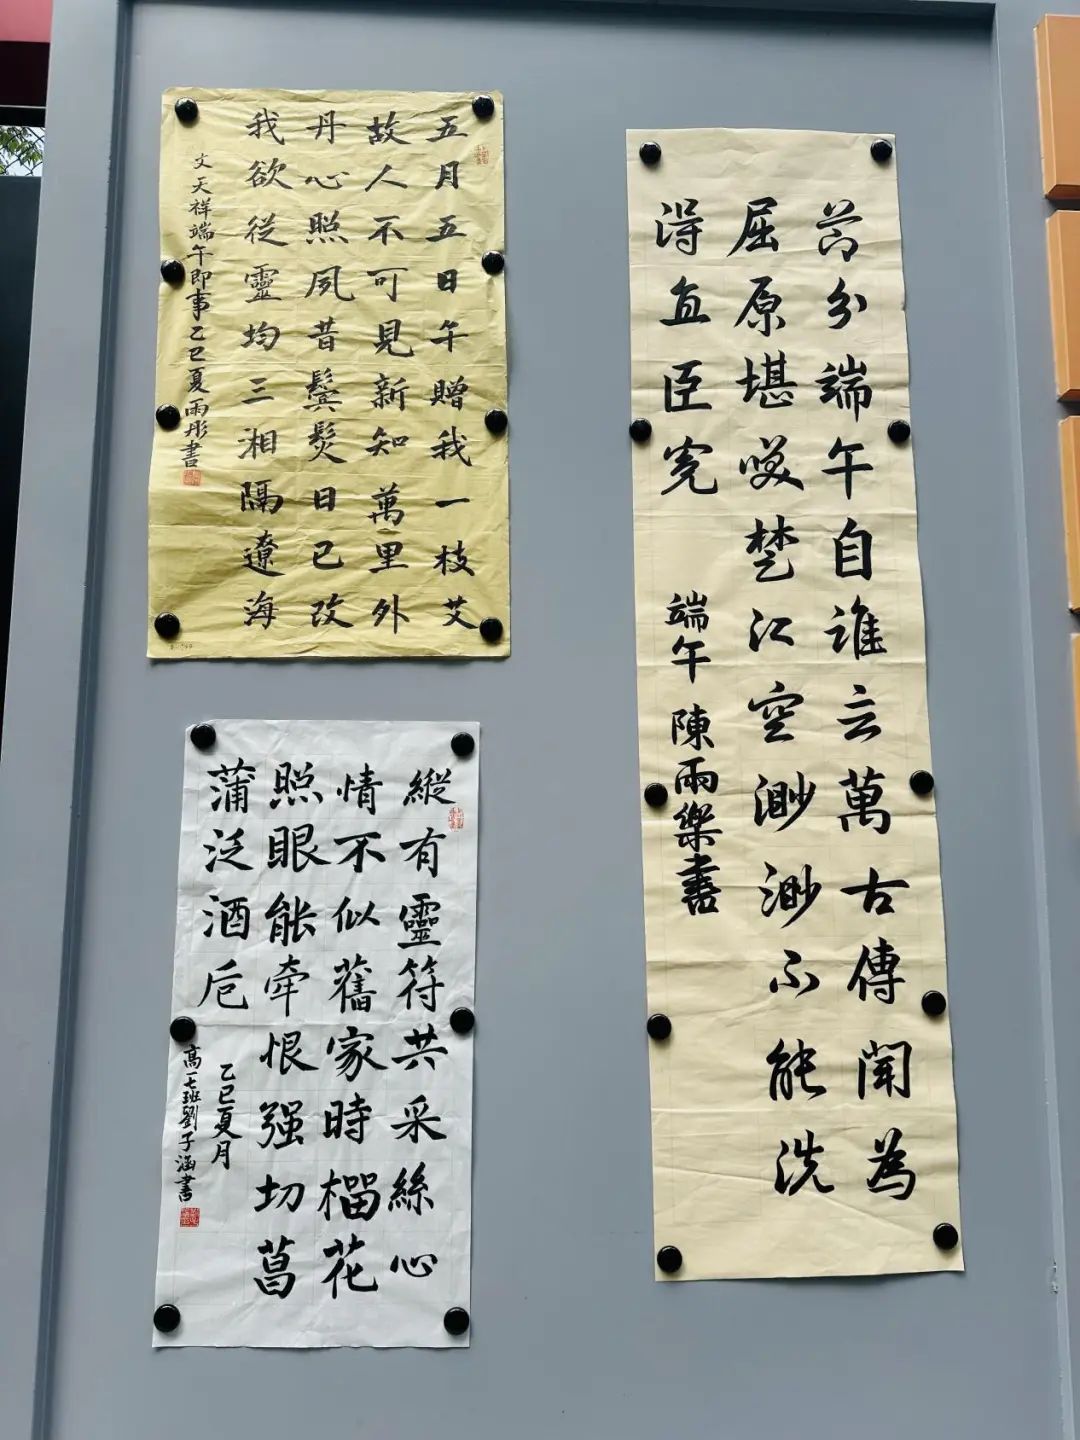 五月五日午贈我一枝艾
故人不可見新知萬里外
丹心照夙昔鬢髮日已改
我欲從靈均三湘隔遼海
文天祥端午即事乙巳夏雨彤書
節分端午自誰云萬古傳聞為
屈原堪笑楚江空渺渺不能洗
得直臣冤
端午 陳雨樂書
縱有靈符共采絲心
情不似舊家時榴花
照眼能牽恨强切菖
蒲泛酒卮
乙巳夏月
高一七班劉子涵書